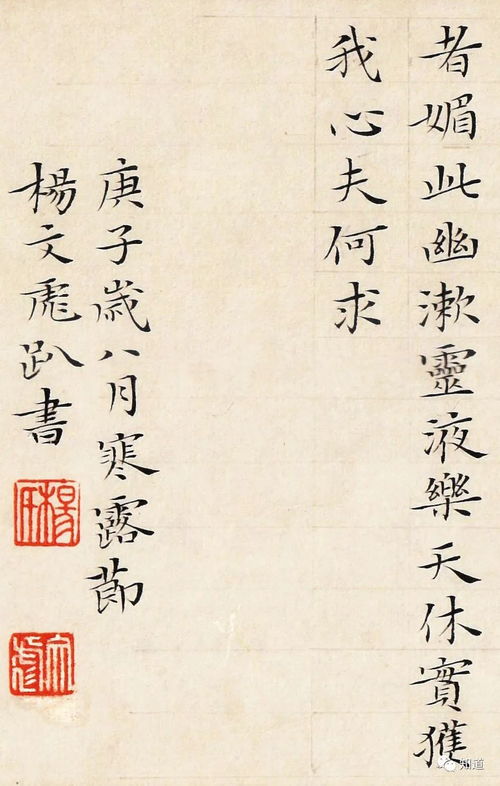 者媚此幽漱靈液樂天休實獲
我心夫何求
庚子歲八月寒露節
楊文虎趴書
知道